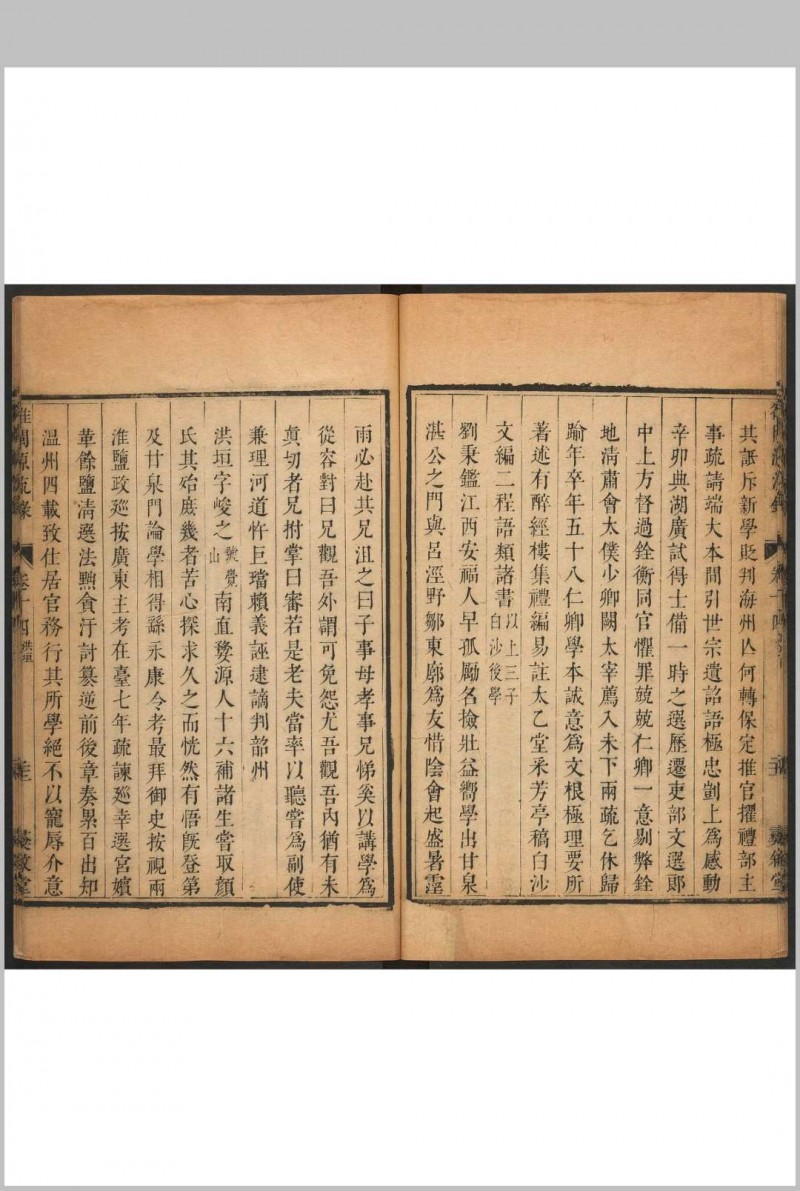 其詆斥新學貶判海州亾何轉保定推官擢禮部主
事疏請端大本間引世宗遺詔語極忠剴上爲感動
辛卯典湖廣試得士備一時之選歷遷吏部文選郎
中上方督過銓衡同官懼罪兢兢仁卿一意剔弊銓
地淸肅會太僕少卿闕太宰薦入未下兩疏乞休歸
踰年卒年五十八仁卿學本誠意爲文根極理要所
著述有醉經樓集禮編易註太乙堂釆芳亭稿白沙
文編二程語類諸書以上三子
白沙後學
劉秉鑑江西安福人早孤勵名撿壯益嚮學出甘泉
湛公之門與呂涇野鄒東廓爲友惜陰會起盛暑霪
雨必赴其兄沮之曰子事母孝事兄悌奚以講學爲
從容對曰兄觀吾外謂可免怨尤吾觀吾內猶有未
眞切者兄拊掌曰審若是老夫當率以聽嘗爲副使
兼理河道忤巨璫賴義誣逮謫判韶州
洪垣字峻之號覺
山
南直婺源人十六補諸生嘗取顏
氏其殆庶幾者苦心探求久之而恍然有悟旣登第
及甘泉門論學相得繇永康令考最拜御史按視兩
淮鹽政廵按廣東主考在臺七年疏諫廵幸選宮嬪
革餘鹽淸選法黜貪汙討簒逆前後章奏累百出知
温州四載致仕居官務行其所學絕不以寵辱介意
雒閩源流錄
卷十四